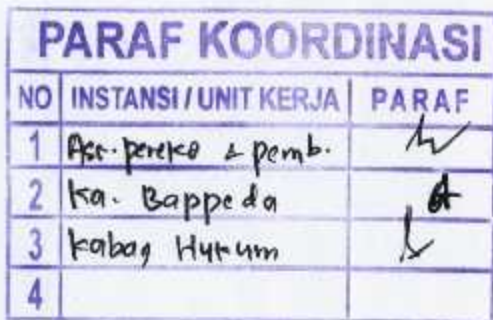 PARAF KOORDINASI
NO INSTANSI / UNIT KERJA PARAF
1 Ass. pereko & pemb.
2 Ka. Bappeda
3 Kabag Hukum
4